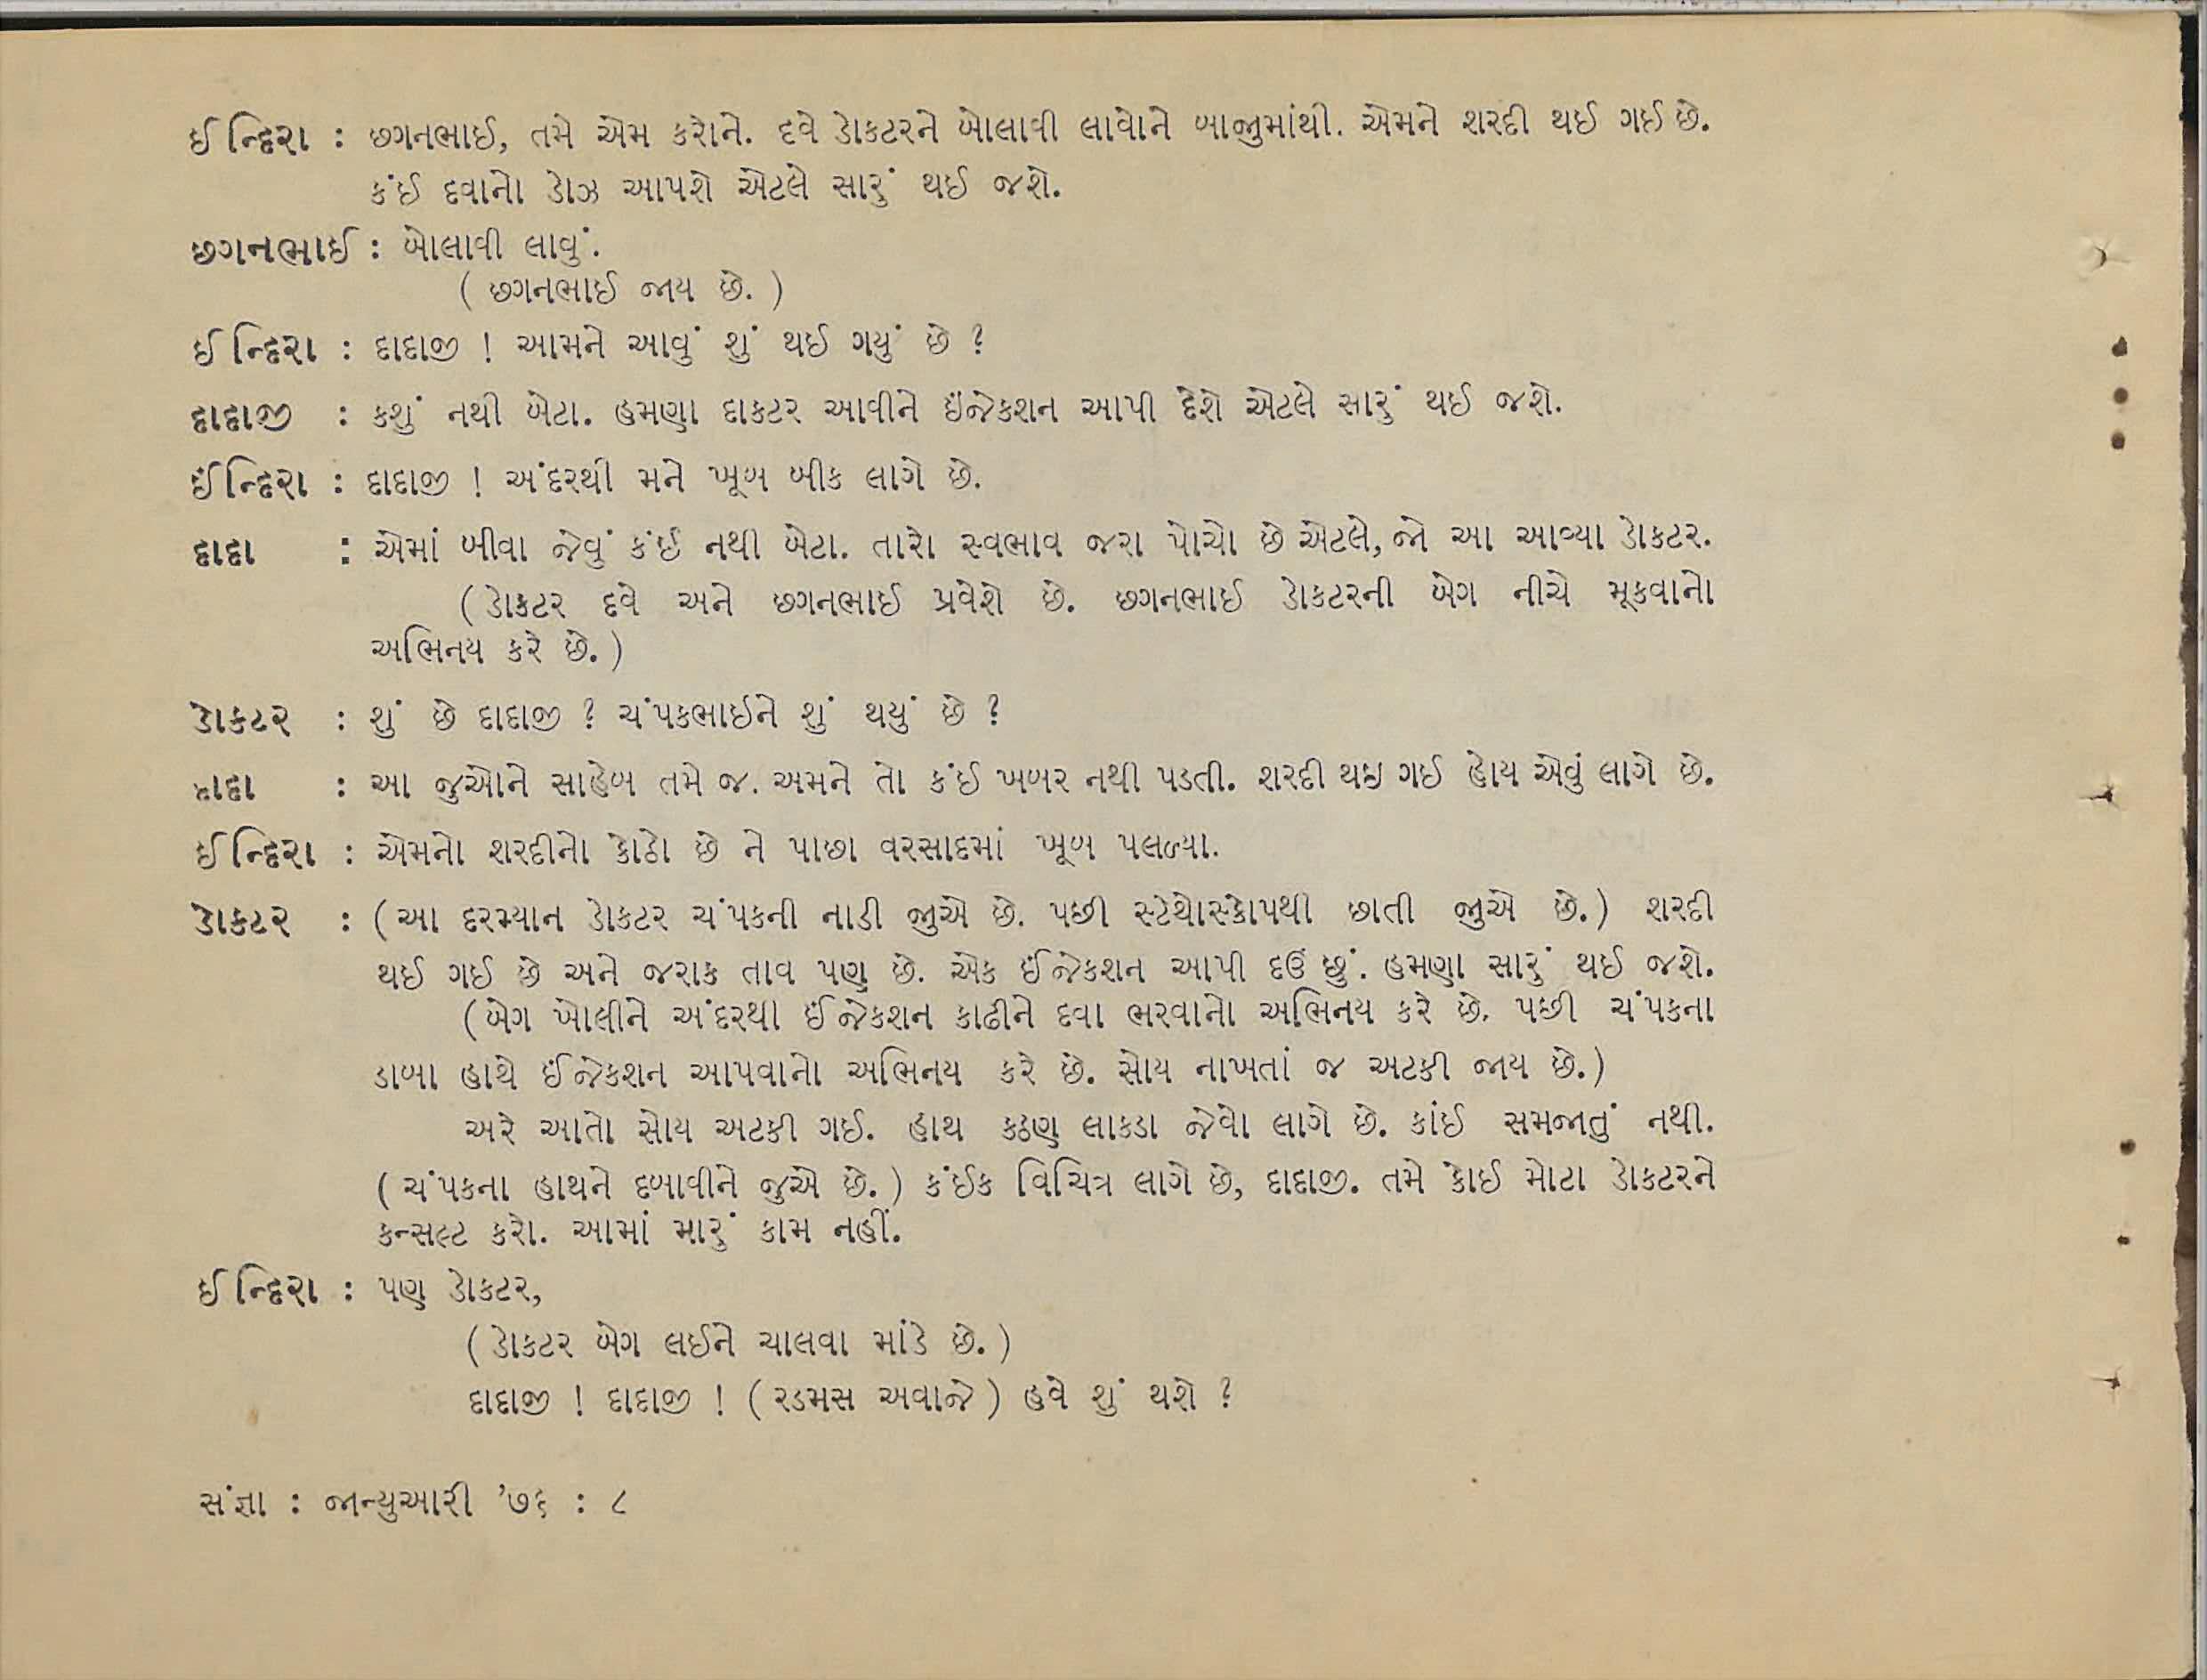 ઈન્દિરા : છગનભાઈ, તમે એમ કરોને. દવે ડોકટરને બોલાવી લાવોને બાજુમાંથી. એમને શરદી થઈ ગઈ છે.
કંઈ દવાનો ડોઝ આપશે એટલે સારું થઈ જશે.
છગનભાઈ : બોલાવી લાવું.
( છગનભાઈ જાય છે. )
ઈન્દિરા : દાદાજી ! આમને આવું શું થઈ ગયું છે ?
દાદાજી : કશું નથી બેટા. હમણા દાકટર આવીને ઇંજેકશન આપી દેશે એટલે સારું થઈ જશે.
ઈન્દિરા : દાદાજી ! અંદરથી મને ખૂબ બીક લાગે છે.
દાદા : એમાં બીવા જેવું કંઈ નથી બેટા. તારો સ્વભાવ જરા પોચો છે એટલે, જો આ આવ્યા ડોકટર.
( ડોકટર દવે અને છગનભાઈ પ્રવેશે છે. છગનભાઈ ડોકટરની બેગ નીચે મૂકવાનો
અભિનય કરે છે. )
ડોકટર : શું છે દાદાજી ? ચંપકભાઈને શું થયું છે ?
દાદા : આ જુઓને સાહેબ તમે જ. અમને તો કંઈ ખબર નથી પડતી. શરદી થઇ ગઈ હોય એવું લાગે છે.
ઈન્દિરા : એમનો શરદીનો કોઠો છે ને પાછા વરસાદમાં ખૂબ પલળ્યા.
ડોકટર : ( આ દરમ્યાન ડોકટર ચંપકની નાડી જુએ છે. પછી સ્ટેથોસ્કોપથી છાતી જુએ છે. ) શરદી
થઈ ગઈ છે અને જરાક તાવ પણ છે. એક ઈંજેકશન આપી દઉં છું. હમણા સારું થઈ જશે.
( બેગ ખોલીને અંદરથી ઈંજેકશન કાઢીને દવા ભરવાનો અભિનય કરે છે. પછી ચંપકના
ડાબા હાથે ઈંજેકશન આપવાનો અભિનય કરે છે. સોય નાખતાં જ અટકી જાય છે. )
અરે આતો સોય અટકી ગઈ. હાથ કઠણ લાકડા જેવો લાગે છે. કાંઈ સમજાતું નથી.
( ચંપકના હાથને દબાવીને જુએ છે. ) કંઈક વિચિત્ર લાગે છે, દાદાજી. તમે કોઈ મોટા ડોકટરને
કન્સલ્ટ કરો. આમાં મારું કામ નહીં.
ઈન્દિરા : પણ ડોકટર,
( ડોકટર બેગ લઈને ચાલવા માંડે છે. )
દાદાજી ! દાદાજી ! ( રડમસ અવાજે ) હવે શું થશે ?
સંજ્ઞા : જાન્યુઆરી '૭૬ : ૮